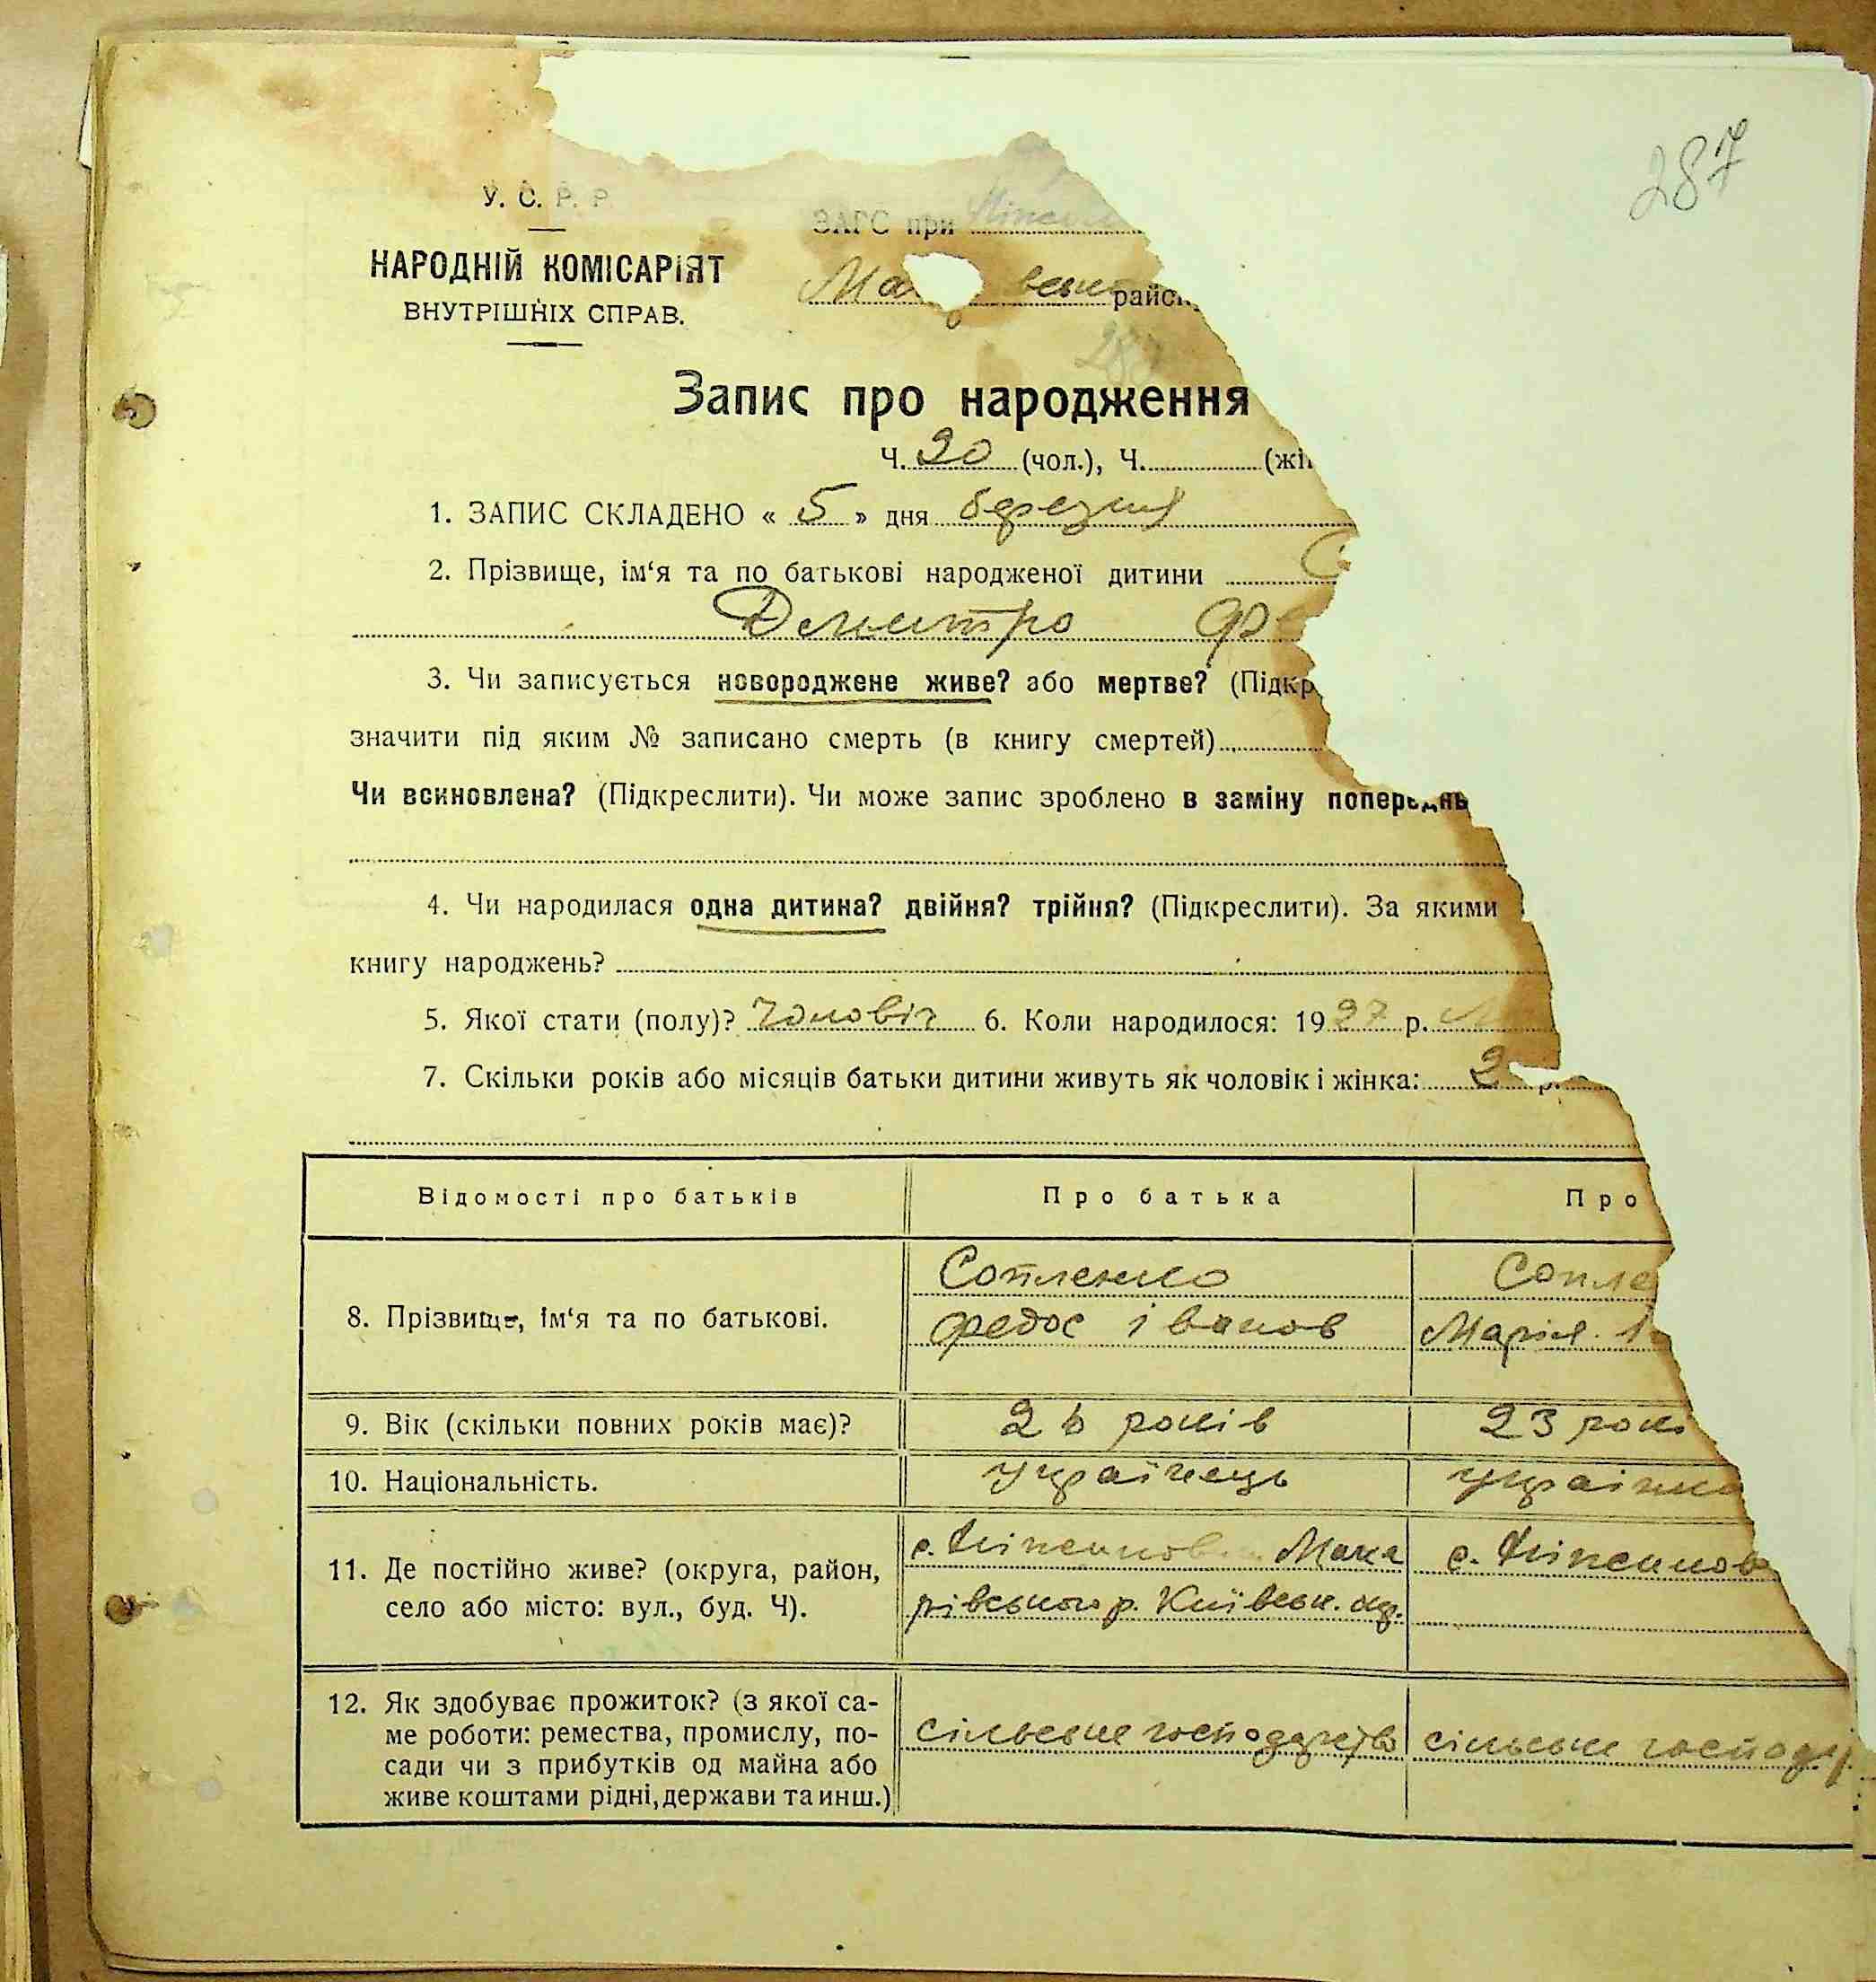 287
У. С. Р. Р
ЗАГС при
НАРОДНІЙ КОМІСАРІЯТ
ВНУТРІШНІХ СПРАВ.
райск
287
Запис про народження
Ч. 20 (чол.), Ч. (жін
1. ЗАПИС СКЛАДЕНО « 5 » дня березня
2. Прізвище, ім‘я та по батькові народженої дитини С
Дмитро Фе
3. Чи записується новороджене живе? або мертве? (Підкр
значити під яким № записано смерть (в книгу смертей)
Чи всиновлена? (Підкреслити). Чи може запис зроблено в заміну попереднь
4. Чи народилася одна дитина? двійня? трійня? (Підкреслити). За якими
книгу народжень?
5. Якої стати (полу)? Чоловіч 6. Коли народилося: 1927 р.
7. Скільки років або місяців батьки дитини живуть як чоловік і жінка: 2 р.
Відомості про батьків Про батька Про
8. Прізвище, ім‘я та по батькові. Сопленко Сопле
Федос Іванов Марія
9. Вік (скільки повних років має)? 26 років 23 рокі
10. Національність. Українець Українка
11. Де постійно живе? (округа, район, с. Мака
село або місто: вул., буд. Ч). рівського р. Київськ. окр. с.
12. Як здобуває прожиток? (з якої са-
ме роботи: ремества, промислу, по- сільське господарство сільське господар
сади чи з прибутків од майна або
живе коштами рідні, держави та инш.)